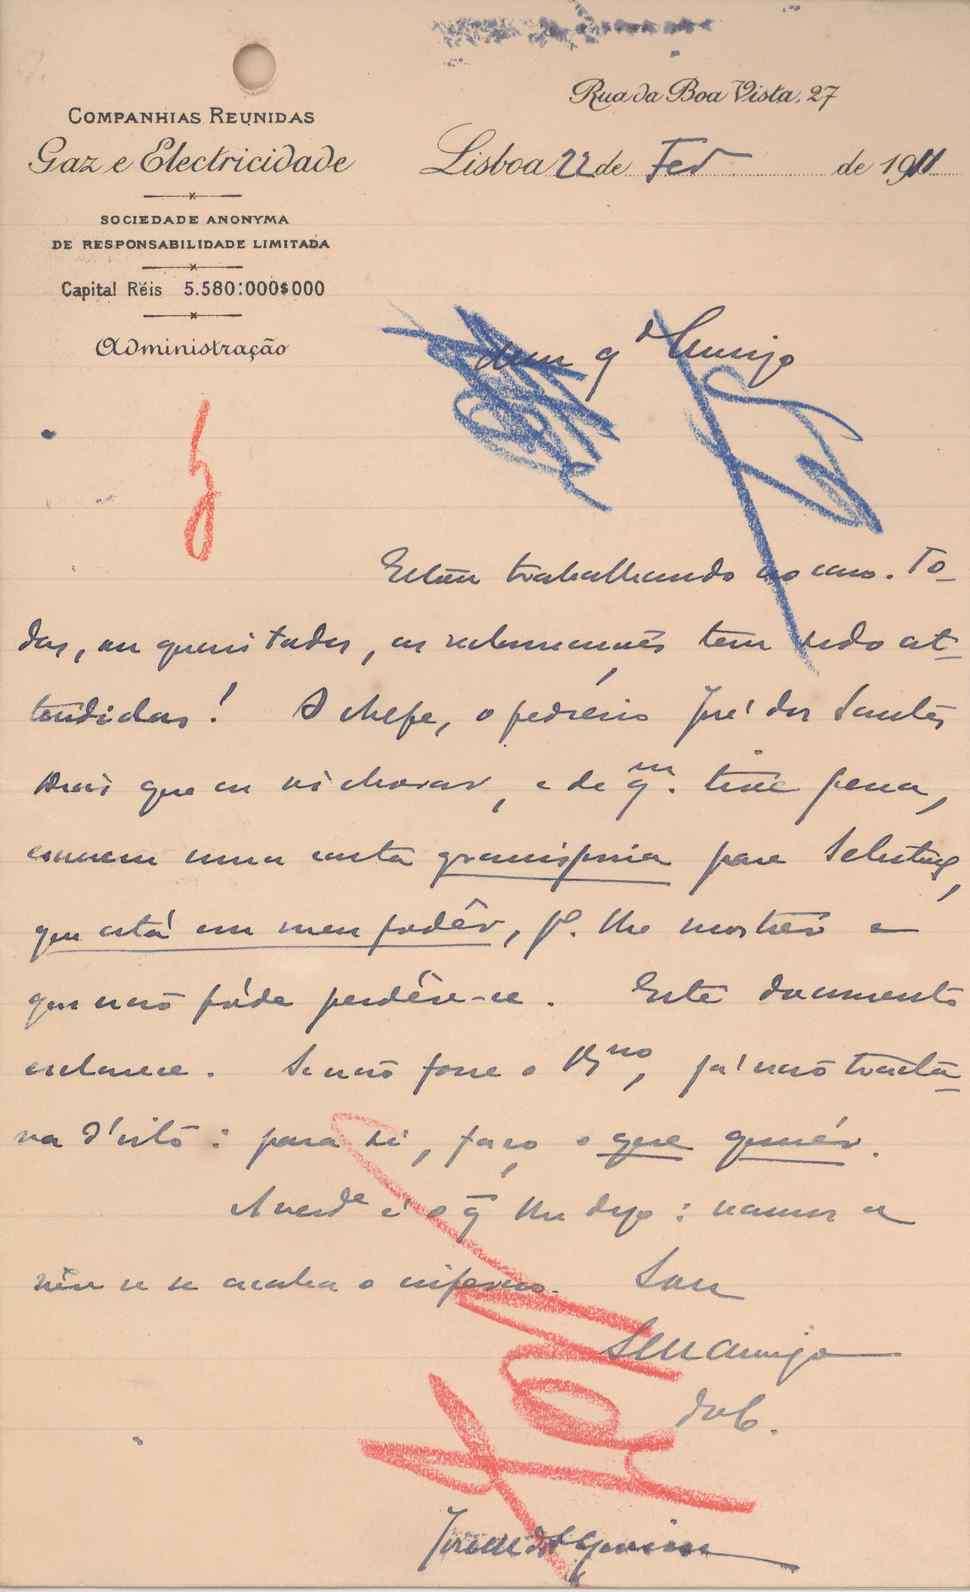 Rua da Boa Vista, 27
COMPANHIAS REUNIDAS
Gaz e Electricidade
Lisboa 22 de Fev de 1911
SOCIEDADE ANONYMA
DE RESPONSABILIDADE LIMITADA
Capital Réis 5.580:000$000
Administração
Meu q.do Amigo
Estão trabalhando no caso. To-
das, ou quasi todas, as reclamações tem sido at-
tendidas! O chefe, o pedreiro José dos Santos
que eu vi chorar, e de q.m tive pena,
uma carta para
que está em meu podêr, p.a lhe mostrar e
que não póde perdêr-se. Este documento
esclarece. Se não fosse o já não tracta-
va d'isto: para si, faço o que quizér.
A verd.e é o q̄ lhe digo: vamos a
vêr se se acaba o inferno. Sou
Seu Amigo